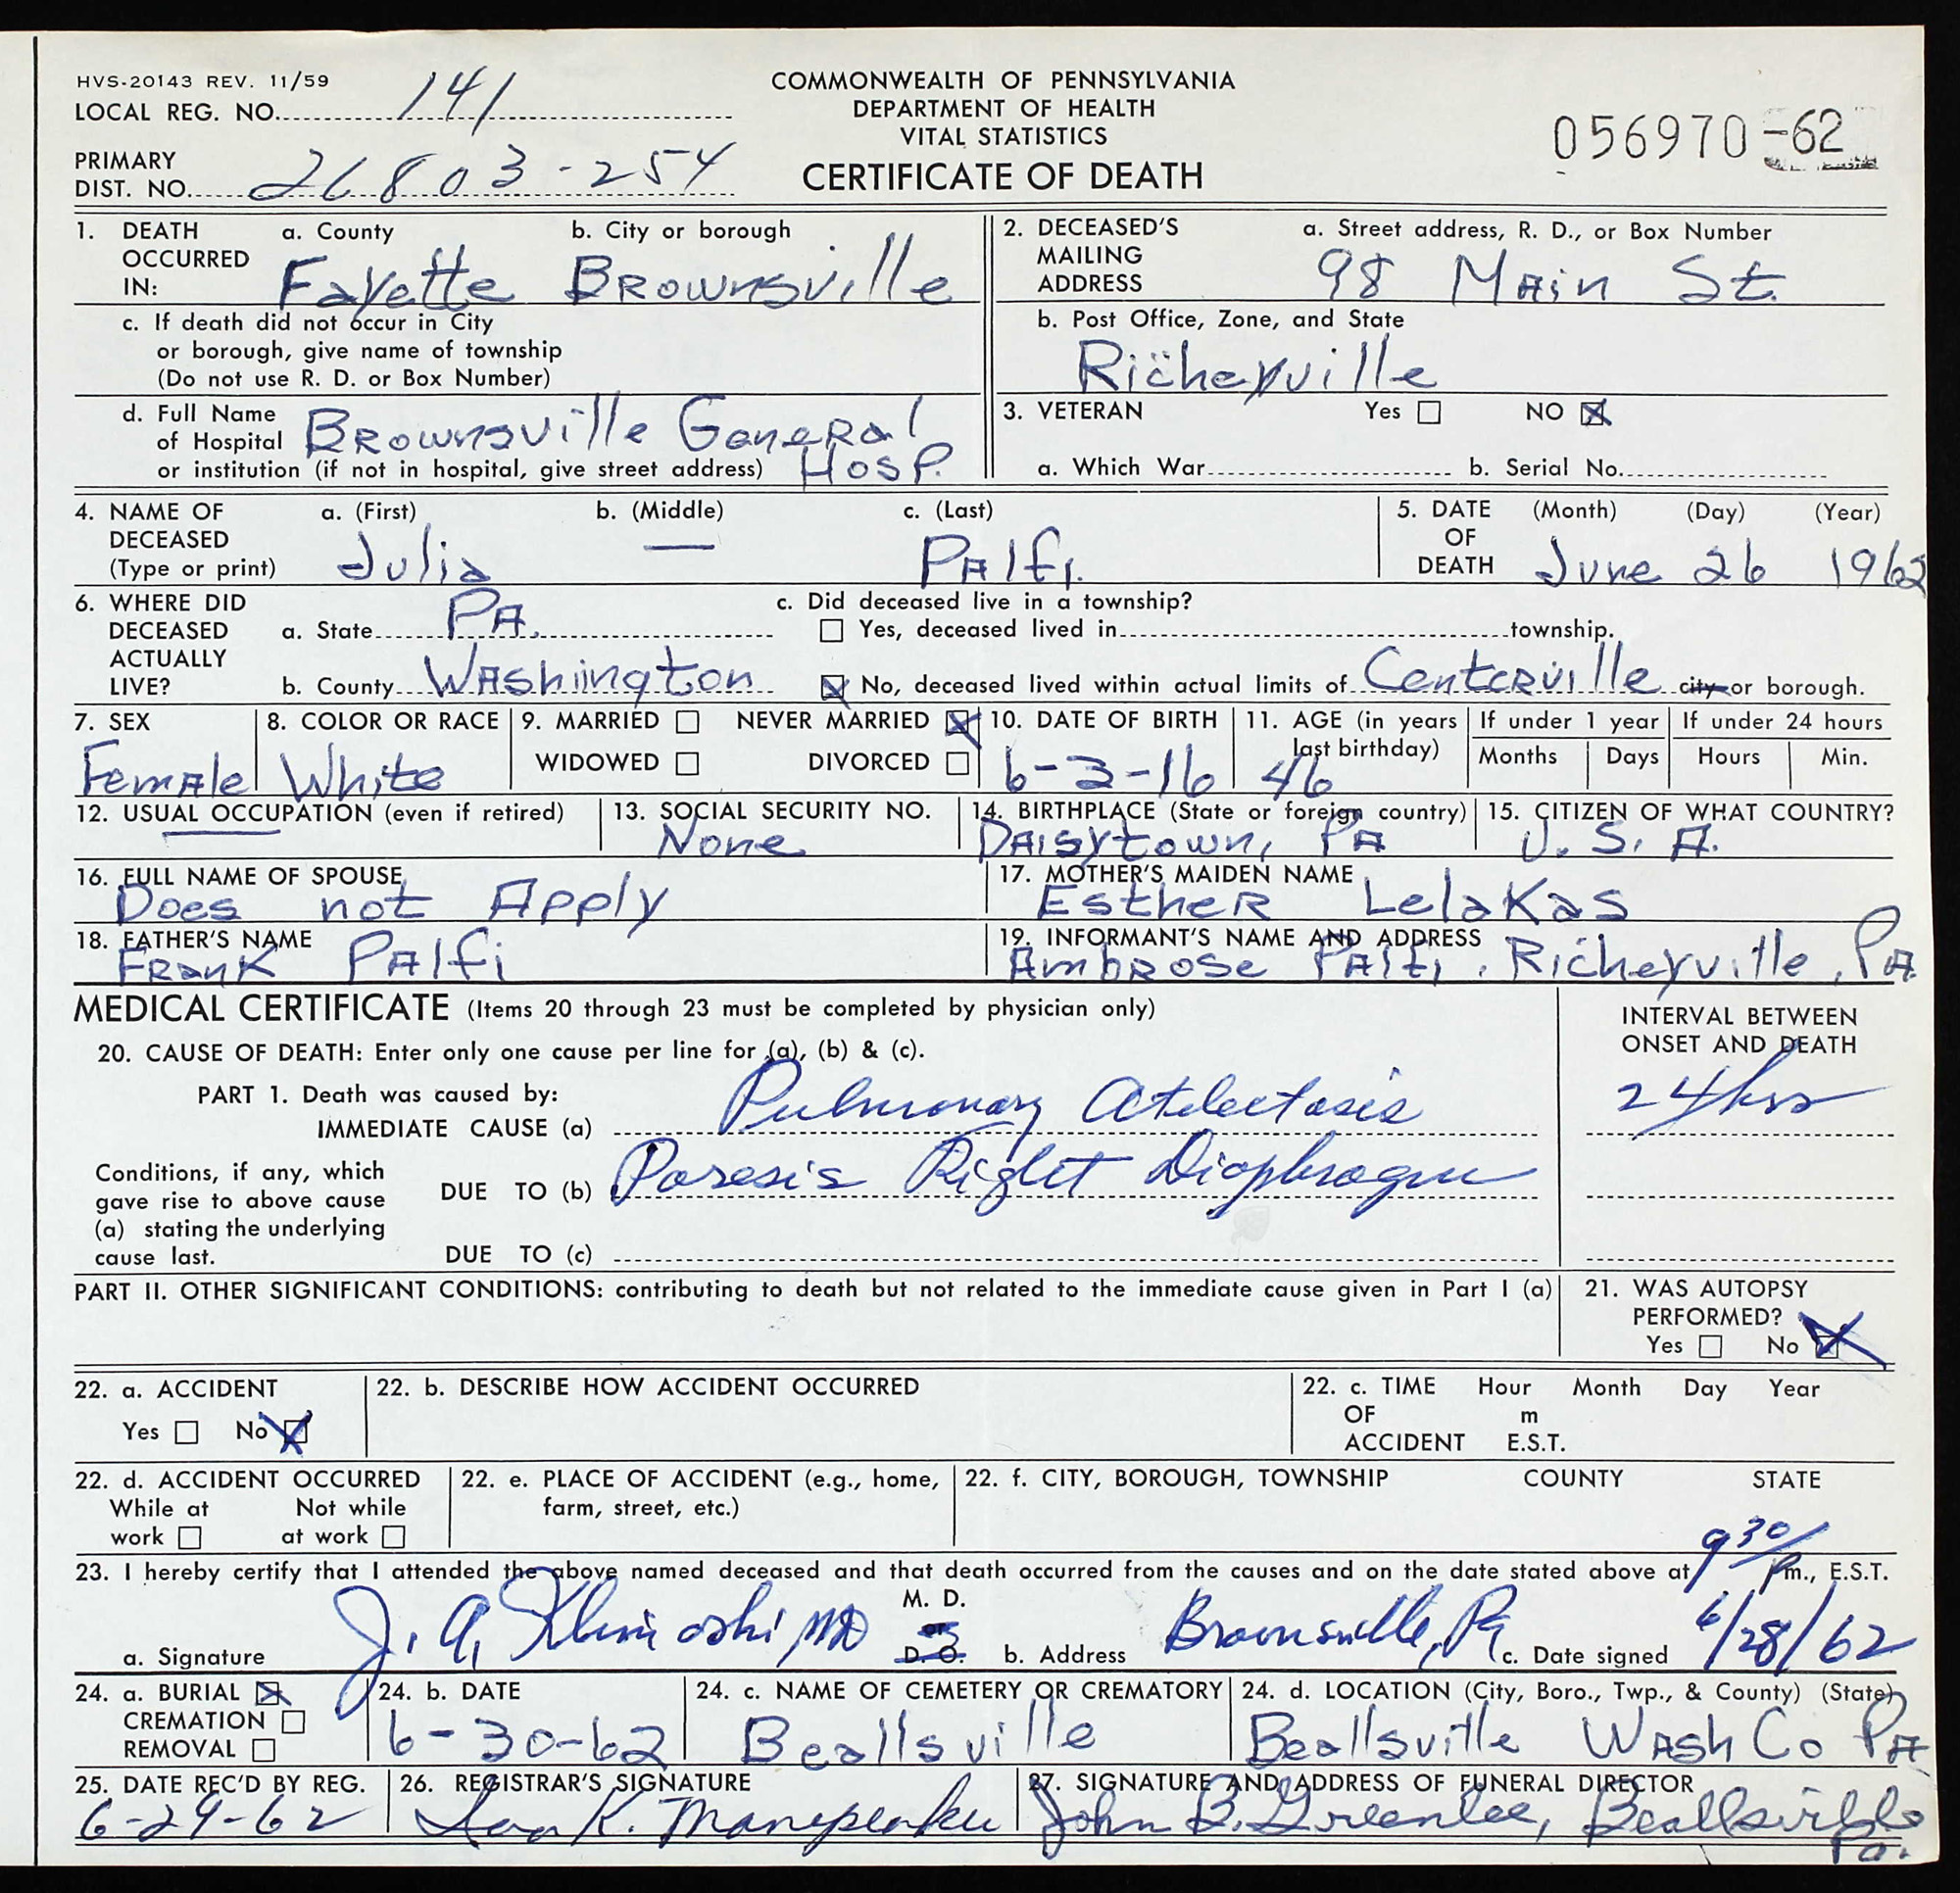 HVS-20143 REV. 11/59
LOCAL REG. NO. 141
COMMONWEALTH OF PENNSYLVANIA
DEPARTMENT OF HEALTH
VITAL STATISTICS
CERTIFICATE OF DEATH
056970-62
PRIMARY
DIST. NO. 26803-254
1. DEATH OCCURRED IN: a. County b. City or borough
Fayette Brownsville
c. If death did not occur in City
or borough, give name of township
(Do not use R. D. or Box Number)
d. Full Name
of Hospital Brownsville General
or institution (if not in hospital, give street address) Hosp.
2. DECEASED'S MAILING ADDRESS a. Street address, R. D., or Box Number
98 Main St.
b. Post Office, Zone, and State
Richeyville
3. VETERAN Yes NO
a. Which War b. Serial No.
4. NAME OF DECEASED (Type or print) a. (First) b. (Middle) c. (Last)
Julia — Palfi
5. DATE OF DEATH (Month) (Day) (Year)
June 26 1962
6. WHERE DID DECEASED ACTUALLY LIVE?
a. State PA.
b. County Washington
c. Did deceased live in a township?
Yes, deceased lived in township.
No, deceased lived within actual limits of Centerville city or borough.
7. SEX
Female
8. COLOR OR RACE
White
9. MARRIED NEVER MARRIED
WIDOWED DIVORCED
10. DATE OF BIRTH
6-3-16
11. AGE (in years
last birthday)
46
If under 1 year
Months Days
If under 24 hours
Hours Min.
12. USUAL OCCUPATION (even if retired)
—
13. SOCIAL SECURITY NO.
None
14. BIRTHPLACE (State or foreign country)
Daisytown, PA
15. CITIZEN OF WHAT COUNTRY?
U. S. A.
16. FULL NAME OF SPOUSE
Does not Apply
17. MOTHER'S MAIDEN NAME
Esther Lelakas
18. FATHER'S NAME
Frank Palfi
19. INFORMANT'S NAME AND ADDRESS
Ambrose Palfi, Richeyville, Pa
MEDICAL CERTIFICATE (Items 20 through 23 must be completed by physician only)
INTERVAL BETWEEN
ONSET AND DEATH
20. CAUSE OF DEATH: Enter only one cause per line for (a), (b) & (c).
PART 1. Death was caused by:
IMMEDIATE CAUSE (a) Pulmonary Atelectasis 24 hrs
Conditions, if any, which
gave rise to above cause
(a) stating the underlying
cause last.
DUE TO (b) Paresis Right Diaphragm
DUE TO (c)
PART II. OTHER SIGNIFICANT CONDITIONS: contributing to death but not related to the immediate cause given in Part I (a)
21. WAS AUTOPSY
PERFORMED?
Yes No
22. a. ACCIDENT
Yes No
22. b. DESCRIBE HOW ACCIDENT OCCURRED
22. c. TIME OF ACCIDENT Hour Month Day Year
m
E.S.T.
22. d. ACCIDENT OCCURRED
While at work Not while at work
22. e. PLACE OF ACCIDENT (e.g., home,
farm, street, etc.)
22. f. CITY, BOROUGH, TOWNSHIP COUNTY STATE
23. I hereby certify that I attended the above named deceased and that death occurred from the causes and on the date stated above at 9 30 Pm., E.S.T.
a. Signature J. A. MD M. D. or D. O. b. Address Brownsville, Pa c. Date signed 6/28/62
24. a. BURIAL
CREMATION
REMOVAL
24. b. DATE
6-30-62
24. c. NAME OF CEMETERY OR CREMATORY
Beallsville
24. d. LOCATION (City, Boro., Twp., & County) (State)
Beallsville Wash Co PA
25. DATE REC'D BY REG.
6-29-62
26. REGISTRAR'S SIGNATURE
K.
27. SIGNATURE AND ADDRESS OF FUNERAL DIRECTOR
John B. Greenlee, Beallsville
Pa.